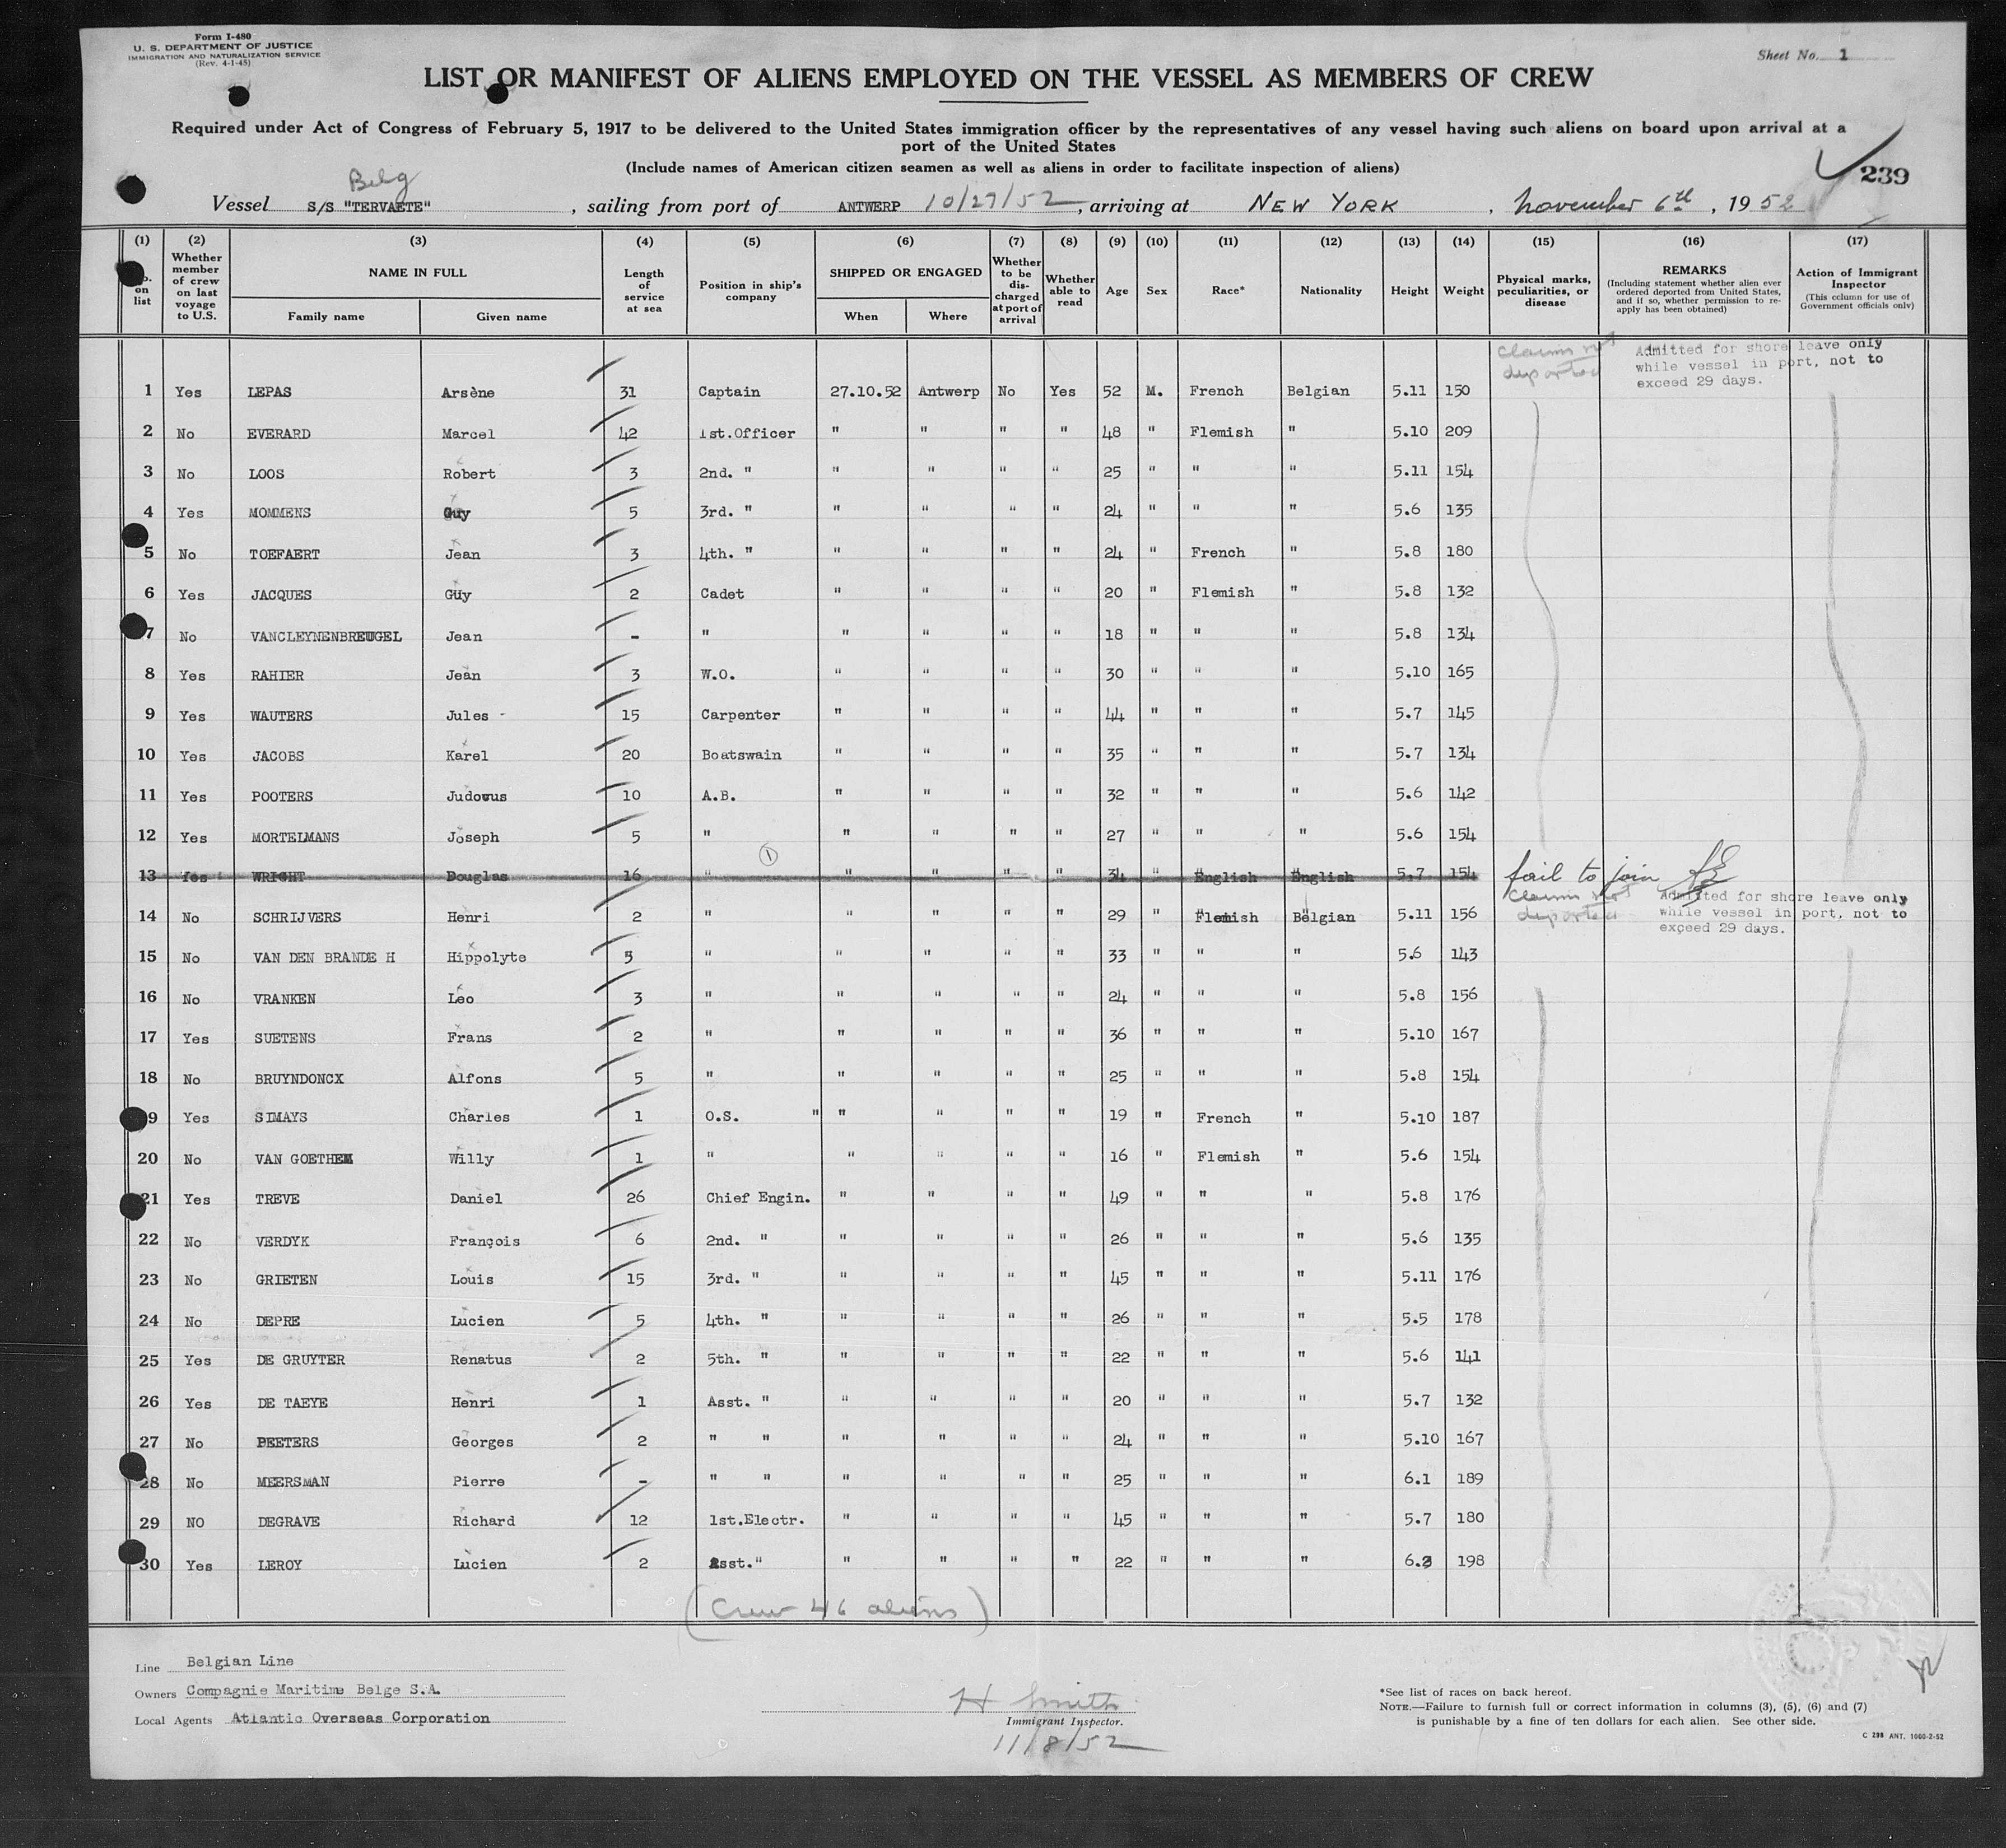 Form I-480
U. S. DEPARTMENT OF JUSTICE
IMMIGRATION AND NATURALIZATION SERVICE
(Rev. 4-1-45)
Sheet No. 1
LIST OR MANIFEST OF ALIENS EMPLOYED ON THE VESSEL AS MEMBERS OF CREW
Required under Act of Congress of February 5, 1917 to be delivered to the United States immigration officer by the representatives of any vessel having such aliens on board upon arrival at a
port of the United States
(Include names of American citizen seamen as well as aliens in order to facilitate inspection of aliens)
239
Belg
Vessel S/S "TERVAETE", sailing from port of ANTWERP 10/27/52, arriving at NEW YORK, November 6th, 1952
(1) (2) (3) (4) (5) (6) (7) (8) (9) (10) (11) (12) (13) (14) (15) (16) (17)
on list
Whether member of crew on last voyage to U.S.
NAME IN FULL
Family name Given name
Length of service at sea
Position in ship's company
SHIPPED OR ENGAGED
When Where
Whether to be discharged at port of arrival
Whether able to read
Age
Sex
Race*
Nationality
Height
Weight
Physical marks, peculiarities, or disease
REMARKS
(Including statement whether alien ever ordered deported from United States, and if so, whether permission to re-apply has been obtained)
Action of Immigrant Inspector
(This column for use of Government officials only)
claims not deported
Admitted for shore leave only
while vessel in port, not to
exceed 29 days.
1 Yes LEPAS Arsène 31 Captain 27.10.52 Antwerp No Yes 52 M. French Belgian 5.11 150
2 No EVERARD Marcel 42 1st.Officer " " " " 48 " Flemish " 5.10 209
3 No LOOS Robert 3 2nd. " " " " " 25 " " " 5.11 154
4 Yes MOMMENS Guy 5 3rd. " " " " " 24 " " " 5.6 135
5 No TOEFAERT Jean 3 4th. " " " " " 24 " French " 5.8 180
6 Yes JACQUES Guy 2 Cadet " " " " 20 " Flemish " 5.8 132
7 No VANCLEYNENBREUGEL Jean - " " " " " 18 " " " 5.8 134
8 Yes RAHIER Jean 3 W.O. " " " " 30 " " " 5.10 165
9 Yes WAUTERS Jules - 15 Carpenter " " " " 44 " " " 5.7 145
10 Yes JACOBS Karel 20 Boatswain " " " " 35 " " " 5.7 134
11 Yes POOTERS Judocus 10 A.B. " " " " 32 " " " 5.6 142
12 Yes MORTELMANS Joseph 5 " " " " " 27 " " " 5.6 154
1
13 Yes WRIGHT Douglas 16 " " " " " 34 " English English 5.7 154 fail to join
claims not deported
Admitted for shore leave only
while vessel in port, not to
exceed 29 days.
14 No SCHRIJVERS Henri 2 " " " " " 29 " Flemish Belgian 5.11 156
15 No VAN DEN BRANDE H Hippolyte 5 " " " " " 33 " " " 5.6 143
16 No VRANKEN Leo 3 " " " " " 24 " " " 5.8 156
17 Yes SUETENS Frans 2 " " " " " 36 " " " 5.10 167
18 No BRUYNDONCX Alfons 5 " " " " " 25 " " " 5.8 154
19 Yes SIMAYS Charles 1 O.S. " " " " " 19 " French " 5.10 187
20 No VAN GOETHEM Willy 1 " " " " " 16 " Flemish " 5.6 154
21 Yes TREVE Daniel 26 Chief Engin. " " " " 49 " " " 5.8 176
22 No VERDYK François 6 2nd. " " " " " 26 " " " 5.6 135
23 No GRIETEN Louis 15 3rd. " " " " " 45 " " " 5.11 176
24 No DEPRE Lucien 5 4th. " " " " " 26 " " " 5.5 178
25 Yes DE GRUYTER Renatus 2 5th. " " " " " 22 " " " 5.6 141
26 Yes DE TAEYE Henri 1 Asst. " " " " " 20 " " " 5.7 132
27 No PEETERS Georges 2 " " " " " " 24 " " " 5.10 167
28 No MEERSMAN Pierre - " " " " " " 25 " " " 6.1 189
29 NO DEGRAVE Richard 12 1st.Electr. " " " " 45 " " " 5.7 180
30 Yes LEROY Lucien 2 Asst." " " " " 22 " " " 198
(Crew 46 aliens)
Line Belgian Line
Owners Compagnie Maritime Belge S.A.
Local Agents Atlantic Overseas Corporation
H Smith
Immigrant Inspector.
11/8/52
*See list of races on back hereof.
NOTE.—Failure to furnish full or correct information in columns (3), (5), (6) and (7)
is punishable by a fine of ten dollars for each alien. See other side.
C 298 ANT. 1000-2-52